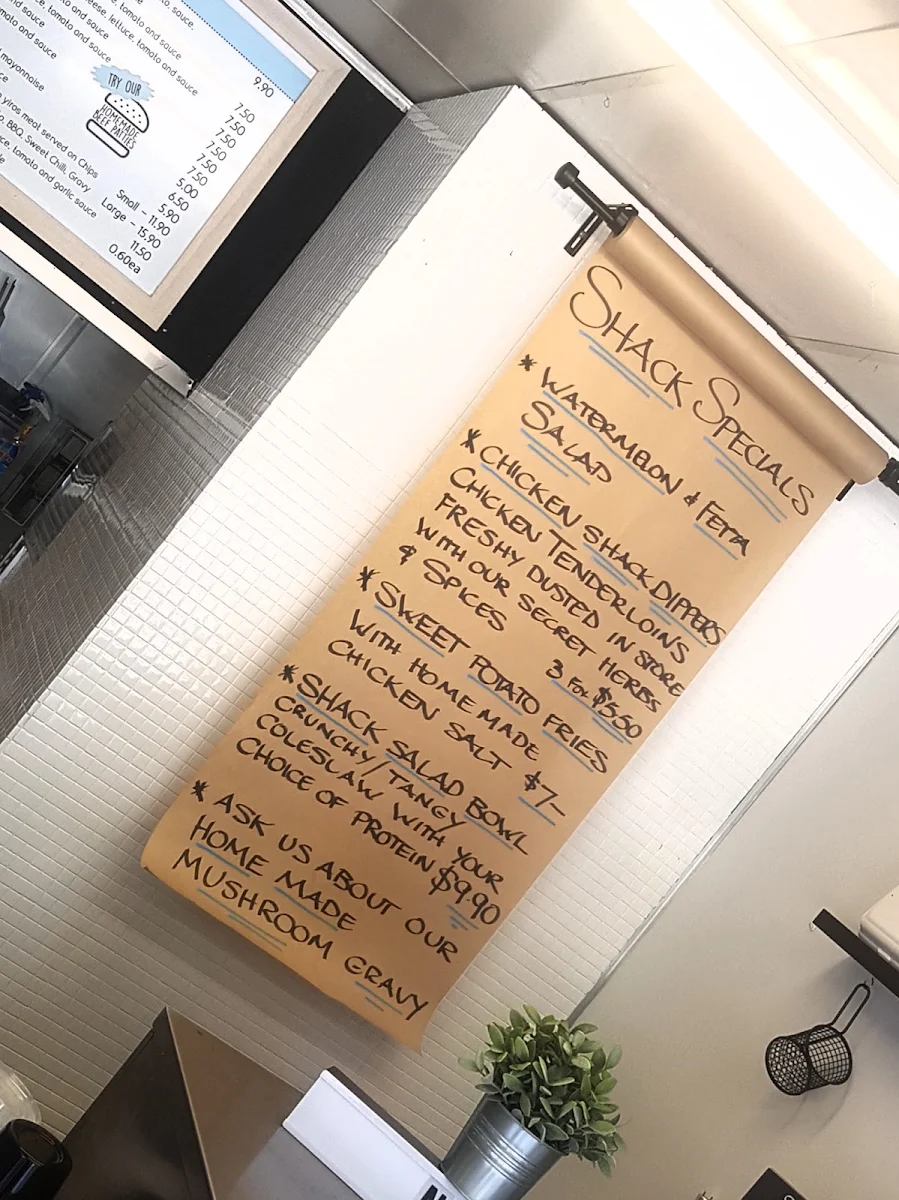 tomato and sauce,
tomato and sauce
cheese, lettuce, tomato and sauce
tomato and sauce
tomato and sauce
mayonnaise
yiros meat served on Chips
BBQ, Sweet Chilli, Gravy
tomato and garlic sauce
TRY OUR
HOMEMADE
BEEF PATTIES
9.90
7.50
7.50
7.50
7.50
7.50
5.00
6.50
5.90
Small - 11.90
Large - 15.90
11.50
0.60ea
SHACK SPECIALS
* WATERMELON & FETTA
SALAD
* CHICKEN SHACK DIPPERS
CHICKEN TENDERLOINS
FRESHY DUSTED IN STORE
WITH OUR SECRET HERBS
& SPICES
3 FOR $5.50
* SWEET POTATO FRIES
WITH HOME MADE
CHICKEN SALT $7-
* SHACK SALAD BOWL
CRUNCHY/TANGY
COLESLAW WITH YOUR
CHOICE OF PROTEIN $9.90
* ASK US ABOUT OUR
HOME MADE
MUSHROOM GRAVY